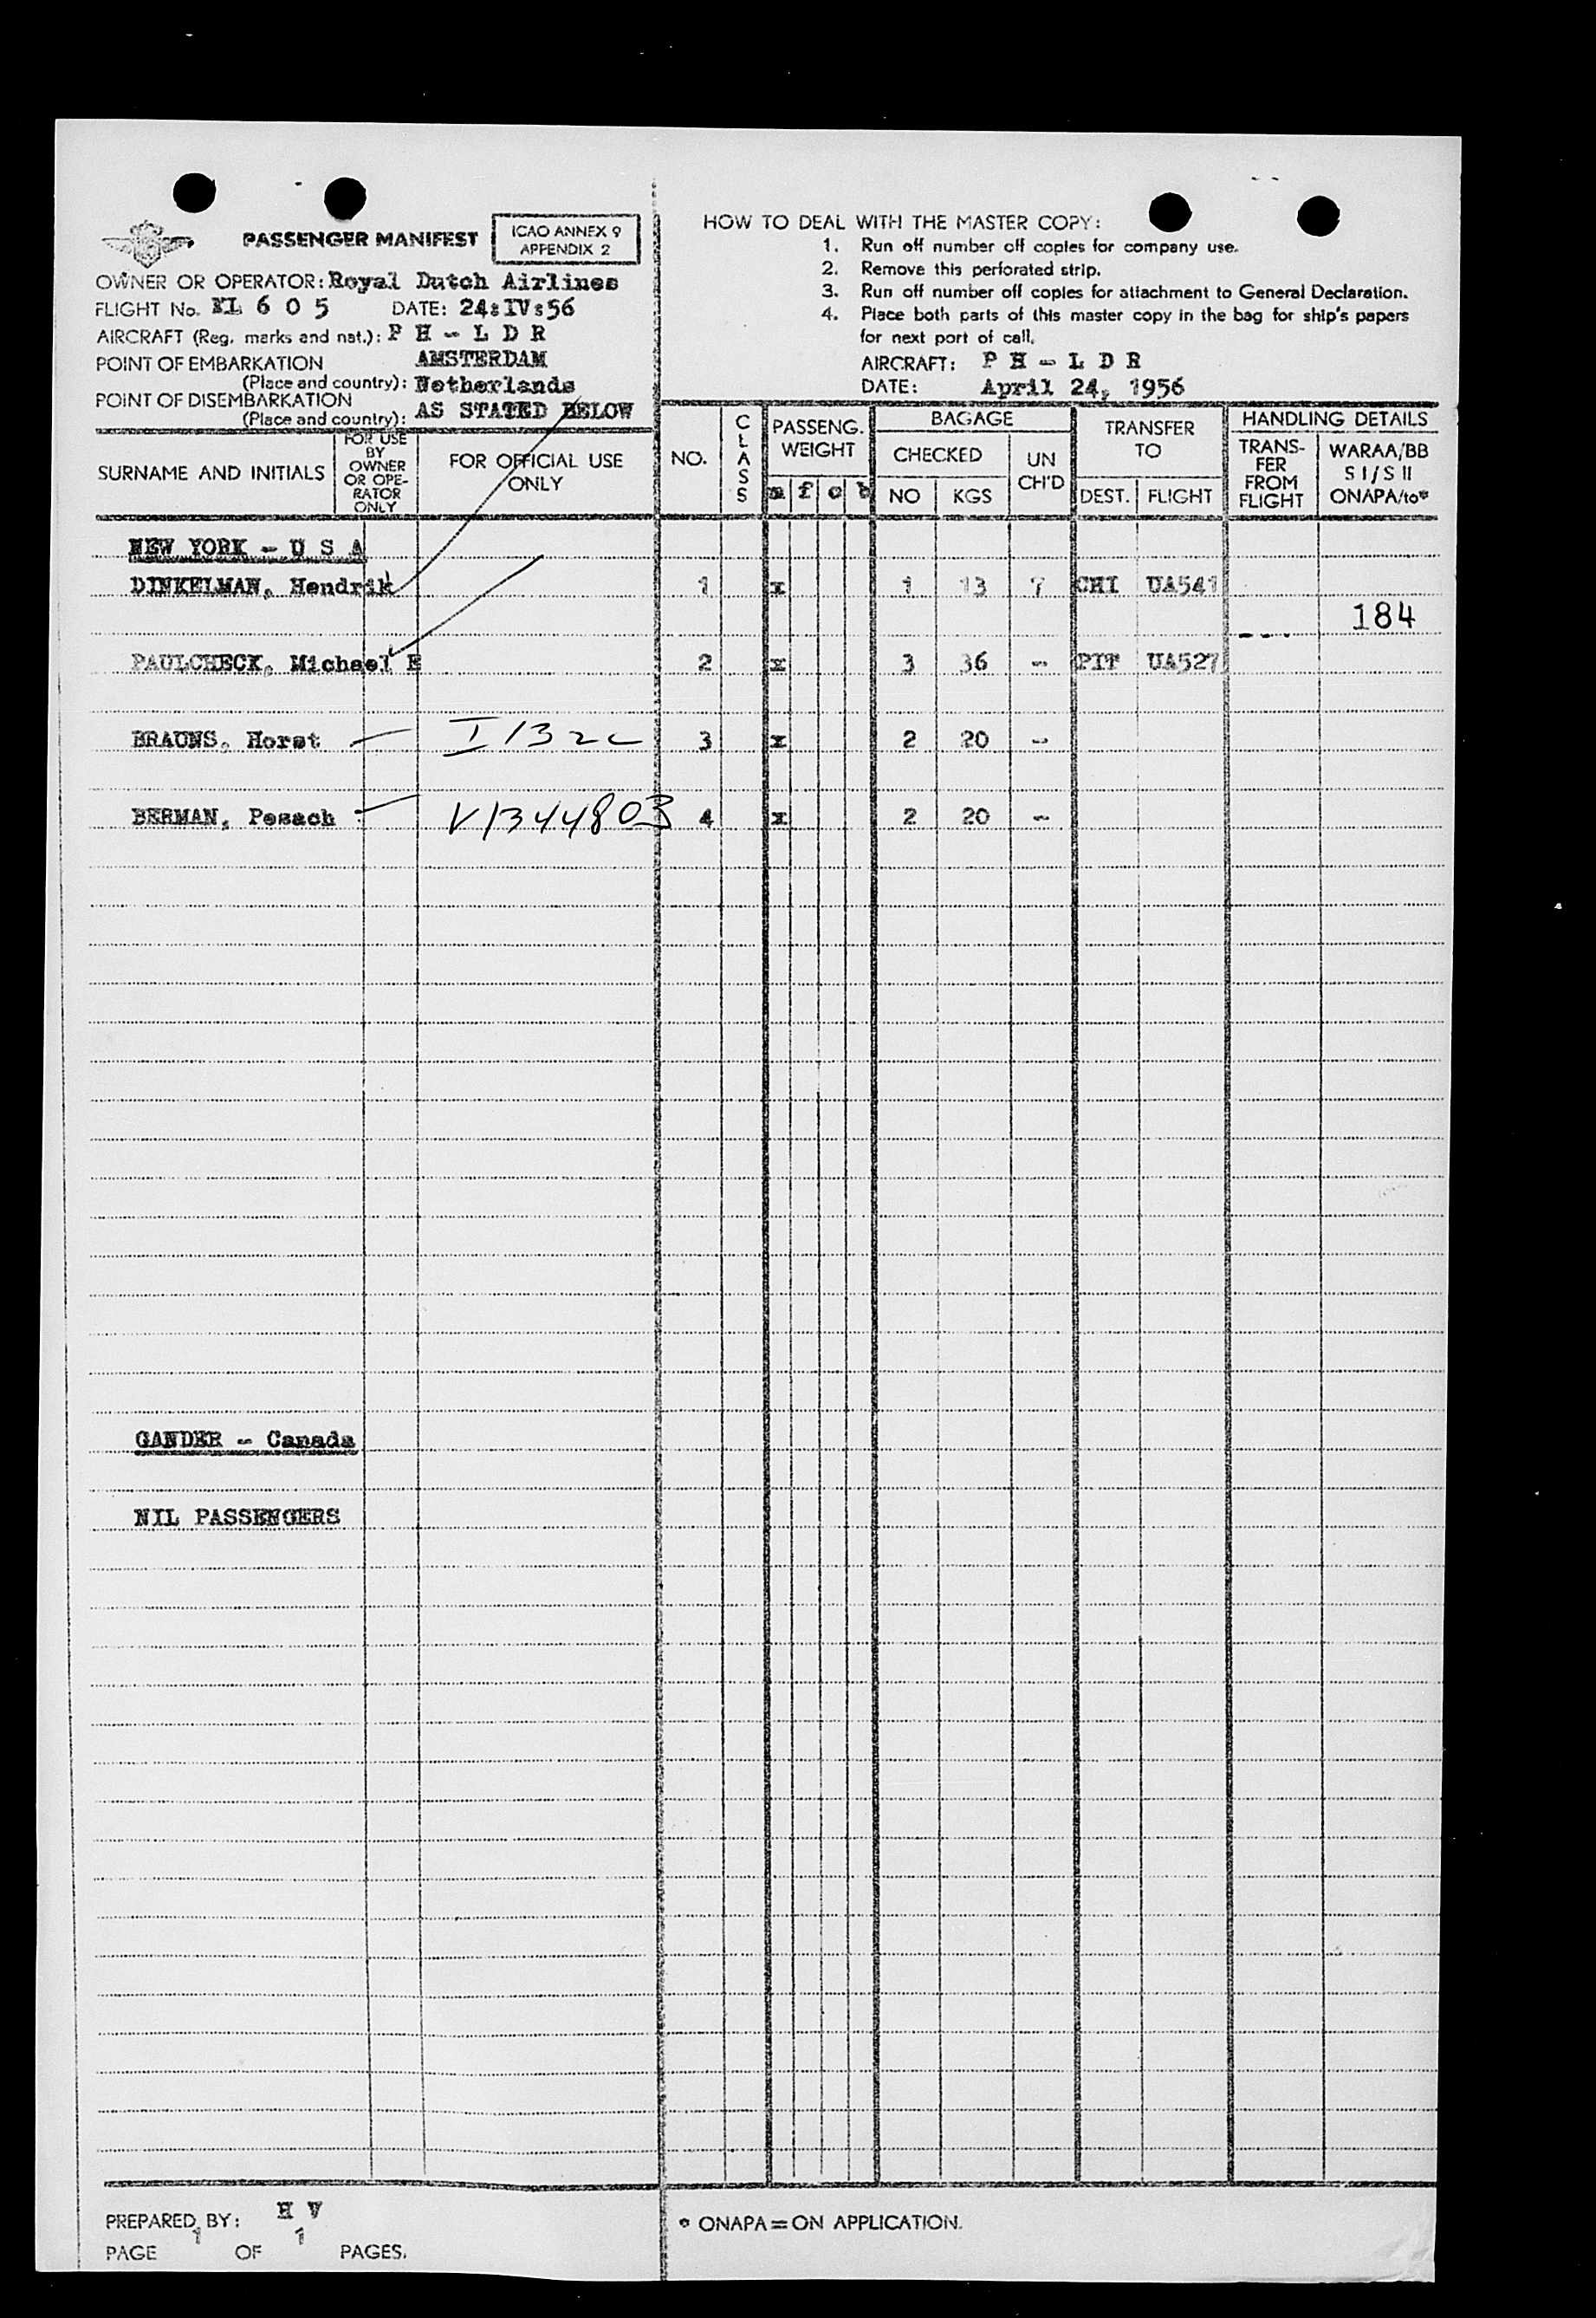 PASSENGER MANIFEST
ICAO ANNEX 9
APPENDIX 2
OWNER OR OPERATOR: Royal Dutch Airlines
FLIGHT No. KL 6 0 5 DATE: 24:IV:56
AIRCRAFT (Reg. marks and nat.): P H - L D R
POINT OF EMBARKATION AMSTERDAM
(Place and country): Netherlands
POINT OF DISEMBARKATION
(Place and country): AS STATED BELOW
HOW TO DEAL WITH THE MASTER COPY:
1. Run off number off copies for company use.
2. Remove this perforated strip.
3. Run off number off copies for attachment to General Declaration.
4. Place both parts of this master copy in the bag for ship's papers
for next port of call.
AIRCRAFT: P H - L D R
DATE: April 24, 1956
SURNAME AND INITIALS
FOR USE
BY
OWNER
OR OPE-
RATOR
ONLY
FOR OFFICIAL USE
ONLY
NO.
CLASS
PASSENG.
WEIGHT
m f c b
BAGAGE
CHECKED
NO KGS
UN
CH'D
TRANSFER
TO
DEST. FLIGHT
HANDLING DETAILS
TRANS-
FER
FROM
FLIGHT
WARAA/BB
S I / S II
ONAPA/to*
NEW YORK - U S A
DINKELMAN, Hendrik 1 x 1 13 7 CHI UA541
184
PAULCHECK, Michael E 2 x 3 36 - PIT UA527
BRAUNS, Horst I 132c 3 x 2 20 -
BERMAN, Pesach V1344803 4 x 2 20 -
GANDER - Canada
NIL PASSENGERS
PREPARED BY: H V
PAGE 1 OF 1 PAGES.
* ONAPA = ON APPLICATION.